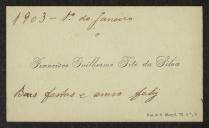 1903 - 1º de Janeiro
Francisco Guilherme Tito da Silva
Boas festas e anno feliz
Rua de S. Marçal